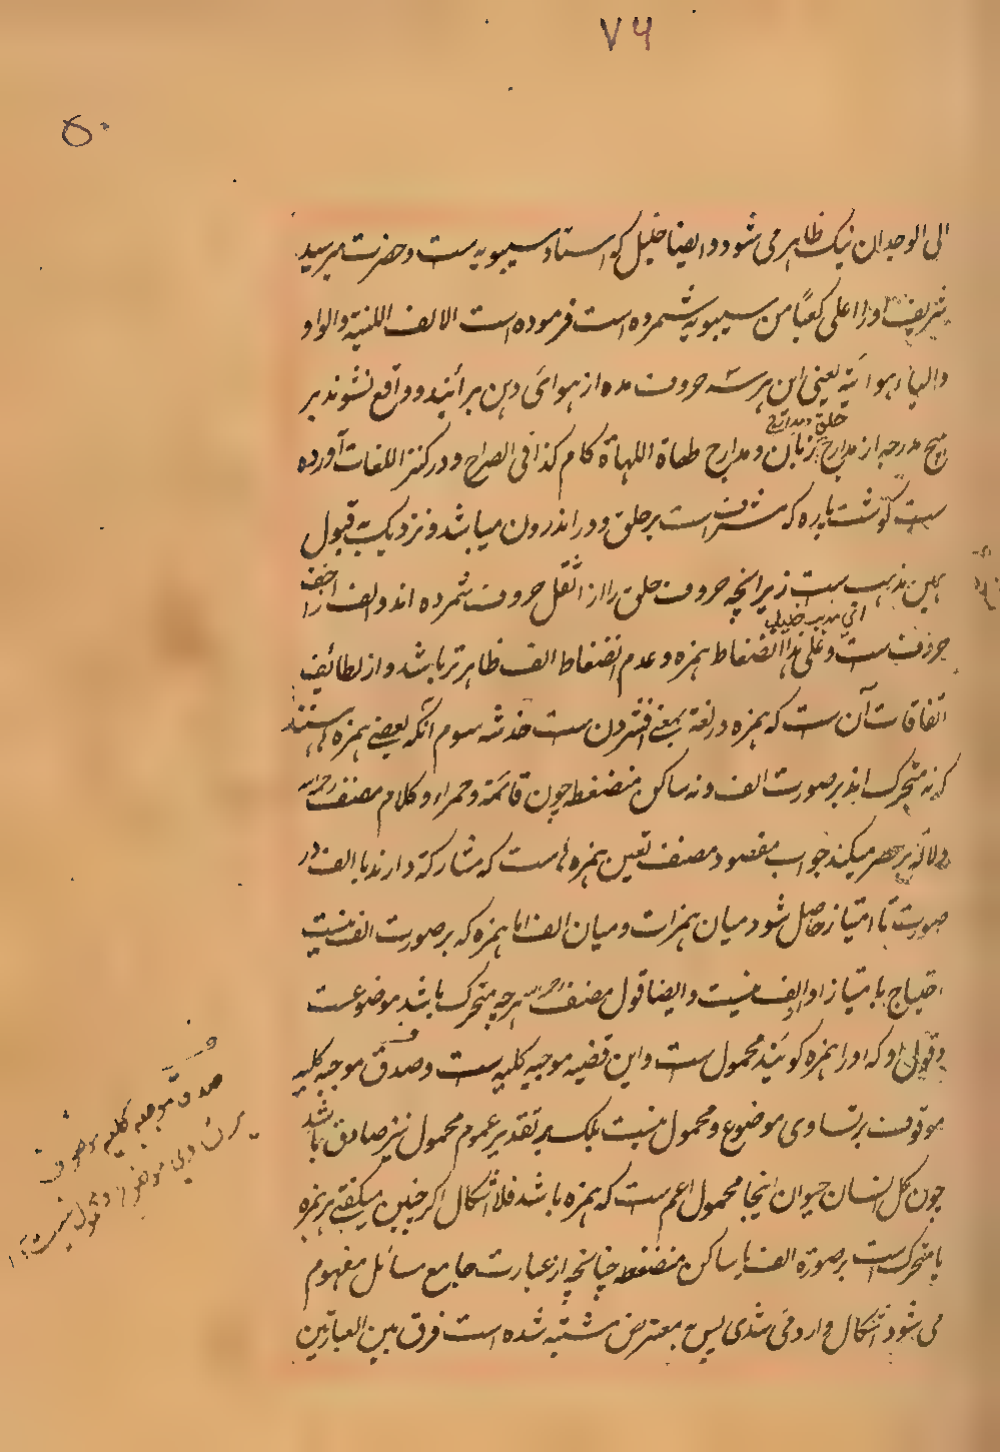 ۷۶
۵۰
الی الوجدان نیک ظاهر می شود و ایضا خلیل که استاد سیبویه ست و حضرت میر سید
شریف اورا اعلی کعبًا من سیبویه شمرده است فرموده است الالف اللینة والواو
والیاء هوائیة یعنی این هر سه حروف مده از هوای دهن برآیند و واقع نشوند بر
هیچ مدرجه از مدارج زبان و مدارج طهاة اللهاة کام کذا فی الصراح و در کنز اللغات آورده
حلق و مدارج
ست گوشت پاره که مشرف است بر حلق و در اندرون میباشد و نزدیک به قبول
همین مذهب ست زیرانچه حروف حلق را از اثقل حروف شمرده اند و الف را اخف
ای مذهب خلیل
حروف ست و علی هذا انضغاط همزه و عدم انضغاط الف ظاهرتر باشد و از لطائف
اتفاقات آن ست که همزه در لغة بمعنی افشردن ست خدشه سوم آنکه بعضی همزه ها هستند
که نه متحرک اند بر صورت الف و نه ساکن منضغط چون قائمة و حمراء و کلام مصنف رحمه الله
دلالة بر حصر میکند جواب مقصود مصنف تعین همزه هاست که مشارکة دارند با الف در
صورت تا امتیاز حاصل شود میان همزات و میان الف اما همزه که بر صورت الف نیست
احتیاج بامتیاز او از الف نیست و ایضا قول مصنف رحمه الله هرچه متحرک باشد موضوعست
و قول او که اورا همزه گویند محمول ست و این قضیه موجبه کلیه ست و صدق موجبه کلیه
موقوف بر تساوی موضوع و محمول نیست بلکه بر تقدیر عموم محمول نیز صادق باشد
چون کل انسان حیوان اینجا محمول اعم ست که همزه باشد فلا اشکال اگر چنین میگفتی هر همزه
یا متحرک است بر صورة الف یا ساکن منضغط چنانچه از عبارت جامع مسائل مفهوم
می شود اشکال وارد می شدی پس به معترض مشتبه شده است فرق بین العبارتین
صدق موجبه کلیه موقوف
بر تساوی موضوع و محمول نیست